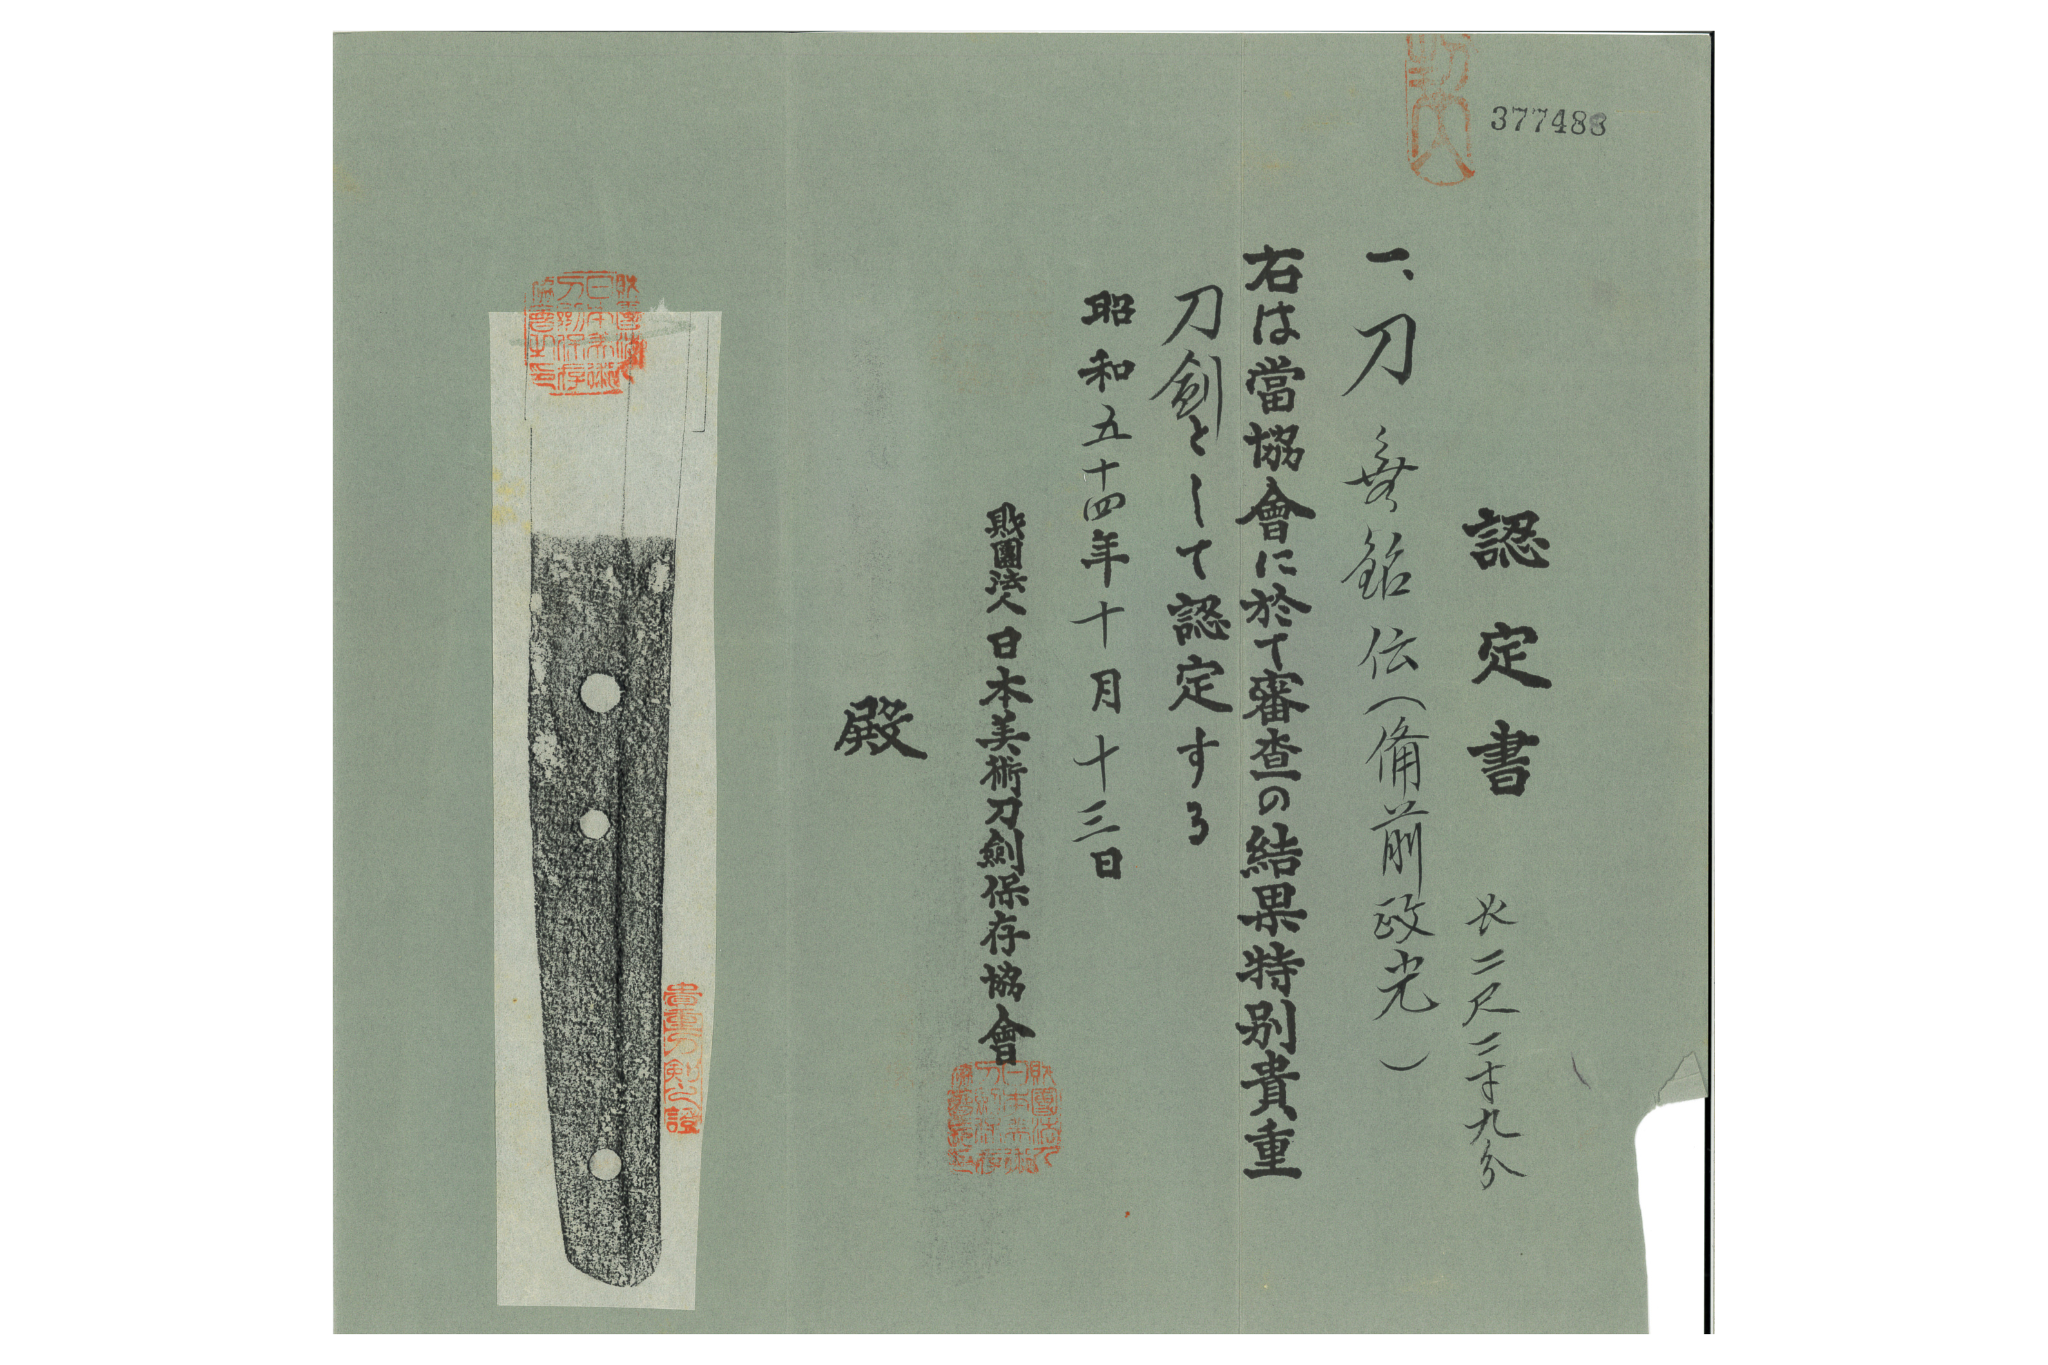 377488
認定書 长二尺二寸九分
一、刀 無銘 伝(備前政光)
右は當協會に於て審査の結果特別貴重
刀劍として認定する
昭和五十四年十月十三日
財團法人日本美術刀劍保存協會
殿
財團法人日本美術刀劍保存協會之印
貴重刀剣之證